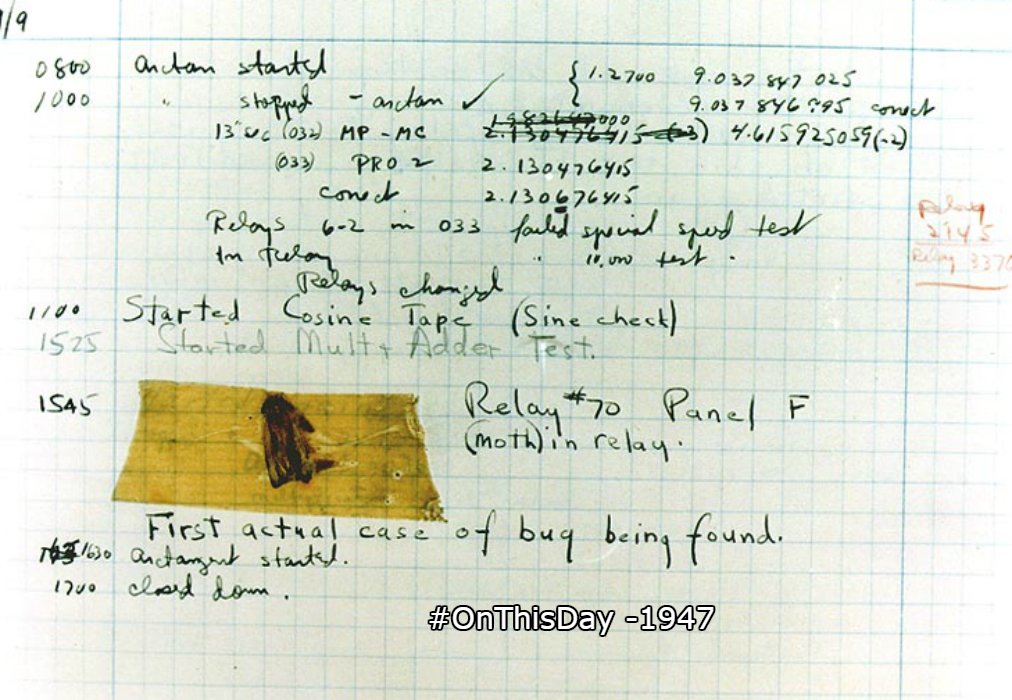 9/9
0800 arctan started
{ 1.2700 9.037 847 025
1000 " stopped - arctan ✓
9.037 846 995 correct
13"uc (032) MP - MC 1.982647000 2.130476415 (-3) 4.615925059(-2)
(033) PRO 2 2.130476415
correct 2.130676415
Relays 6-2 in 033 failed special speed test
In Relay " 10,000 test .
Relays changed
Relay
2145
Relay 3370
1100 Started Cosine Tape (Sine check)
1525 Started Mult + Adder Test.
1545 Relay #70 Panel F
(moth) in relay.
First actual case of bug being found.
1630 arctangent started.
1700 closed down.
#OnThisDay -1947